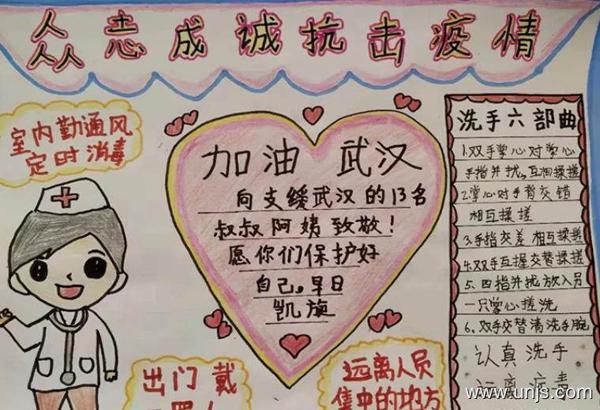 众志成诚抗击疫情
室内勤通风
定时消毒
加油 武汉
向支缓武汉的13名
叔叔阿姨致敬！
愿你们保护好
自己。早日
凯旋
洗手六部曲
1.双手掌心对掌心
手指并拢,互相揉搓
2.掌心对手背交错
相互揉搓
3.手指交差 相互揉搓
4.双手互握交替揉搓
5.四指并拢放入另
一只掌心搓洗
6.双手交替清洗手腕
认真洗手
远离
出门戴
远离人员
集中的地方
www.unjs.com